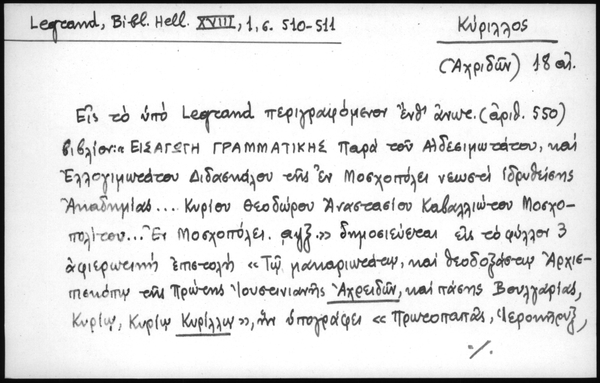 Legrand, Bibl. Hell. XVIII, 1, σ. 510-511
Κύριλλος
(Ἀχριδῶν) 18 αἰ.
Εἰς τὸ ὑπὸ Legrand περιγραφόμενον ἔνθ' ἀνωτ. (ἀριθ. 550)
βιβλίον: « ΕΙΣΑΓΩΓΗ ΓΡΑΜΜΑΤΙΚΗΣ Παρὰ τοῦ Αἰδεσιμωτάτου, καὶ
Ἐλλογιμωτάτου Διδασκάλου τῆς ἐν Μοσχοπόλει νεωστὶ ἱδρυθείσης
Ἀκαδημίας... Κυρίου Θεοδώρου Ἀναστασίου Καβαλλιώτου Μοσχο-
πολίτου... Ἐν Μοσχοπόλει. ͵αψξ.» δημοσιεύεται εἰς τὸ φύλλον 3
ἀφιερωτικὴ ἐπιστολὴ « Τῷ μακαριωτάτῳ, καὶ θεοδοξάστῳ Ἀρχιε-
πισκόπῳ τῆς Πρώτης Ἰουστινιανῆς Ἀχρειδῶν, καὶ πάσης Βουλγαρίας,
Κυρίῳ, Κυρίῳ Κυρίλλῳ», ἣν ὑπογράφει « Πρωτοπαπᾶς, Ἱεροκήρυξ,
·/.